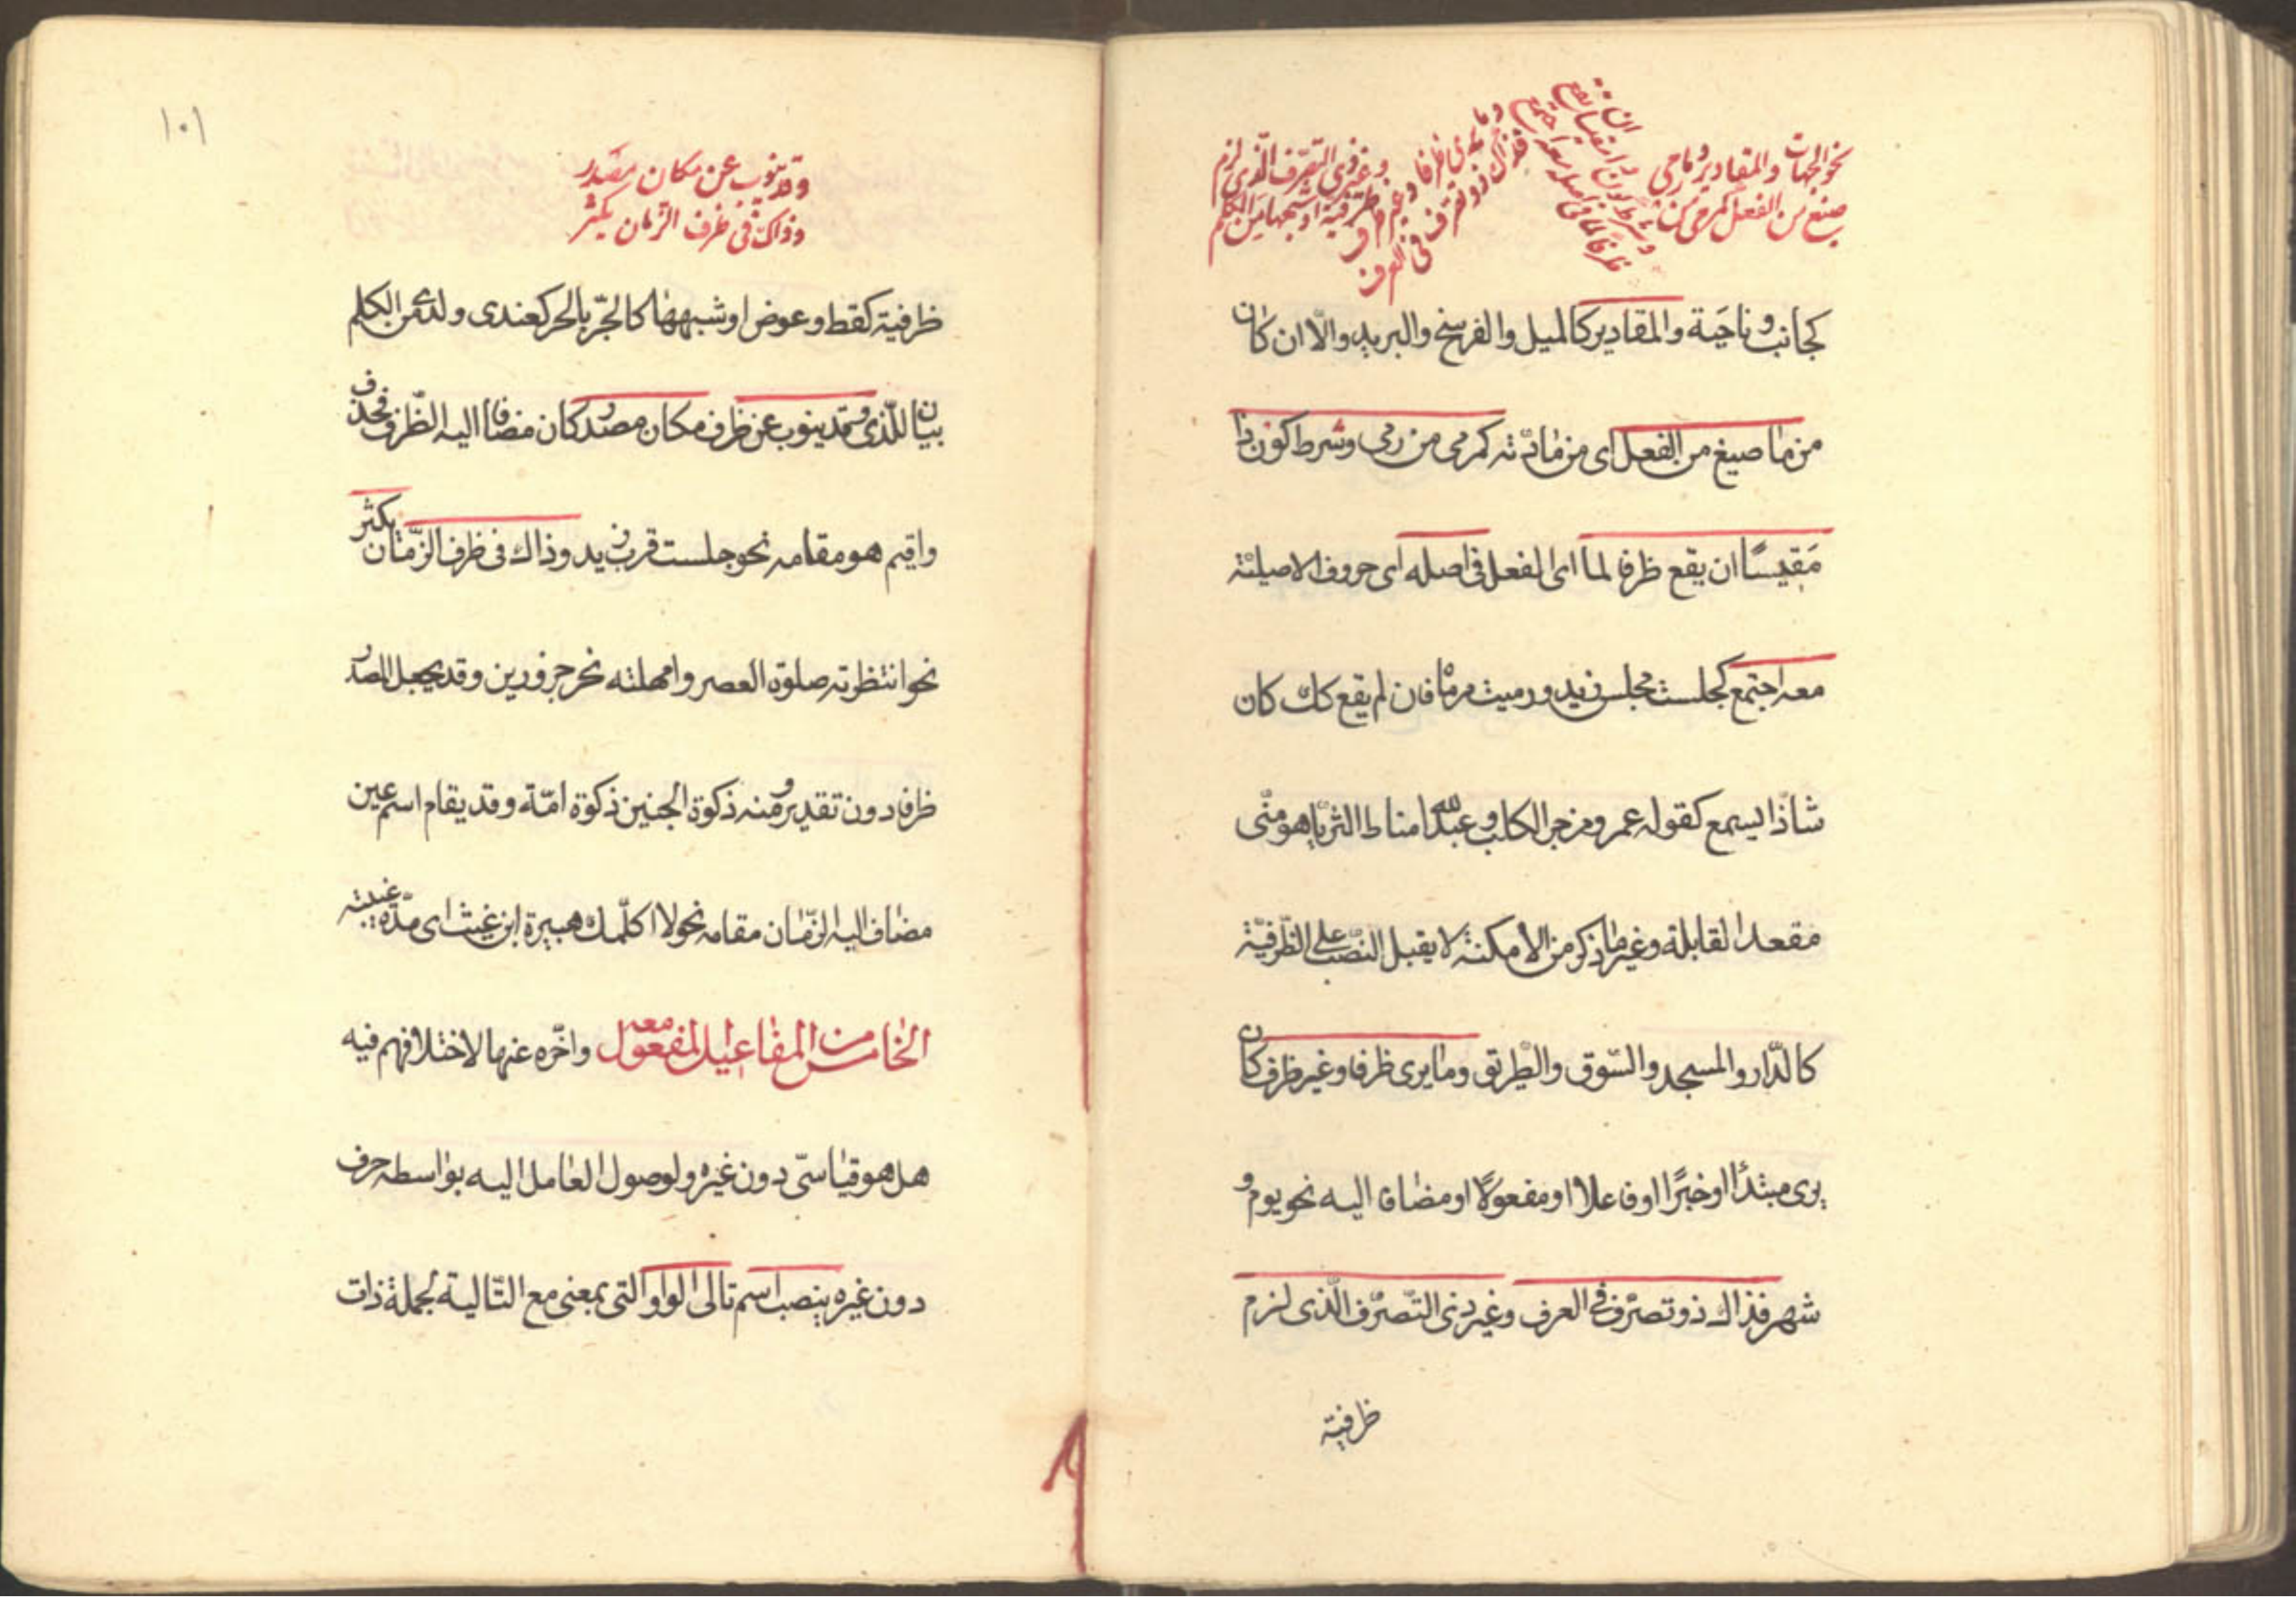 نحو الجهات والمقادير وما
صيغ من الفعل كمرمى من رمى
وشرط كون ذا مقيسا ان يقع
ظرفا لما فى اصله معه اجتمع
وما يرى ظرفا وغير ظرف
فذاك ذو تصرف فى العرف
وغير ذى التصرف الّذى لزم
ظرفية او شبهها من الكلم
كجانب وناحَية والمقادير كالميل والفرسخ والبريد والّا ان كان
من ما صيغ من الفعل اى من مادّته كمرمى من رمى وشرط كون ذا
مَقيسًا ان يقع ظرفا لما اى الفعل فى اصله اى حروفه الاصيلة
معه اجتمع كجلست مجلس زيد ورميت مرماه فان لم يقع كك كان
شاذّا يسمع كقوله عمرو مزجر الكلب وعبد الله مناط الثريّا وهو منّى
مقعد القابلة وغير ما ذكر من الامكنة لا يقبل النصب على الظّرفيّة
كالدّار والمسجد والسّوق والطّريق وما يرى ظرفا وغير ظرف كان
يرى مبتدًا او خبرًا او فاعلا او مفعولًا او مضافا اليه نحو يوم و
شهر فذاك ذو تصرّف فى العرف وغير ذى التّصرّف الّذى لزم
ظرفية
١٠١
وقد ينوب عن مكان مصدر
وذاك فى ظرف الزمان يكثر
ظرفية كقط وعوض او شبهها كالجّر بالحر كعندى ولدى من الكلم
بيان للّذى وقد ينوب عن ظرف مكان مصدر كان مضافا اليه الظّرف فحذف
واقيم هو مقامه نحو جلست قرب زيد وذاك فى ظرف الزّمان يكثر
نحو انتظرته صلوة العصر وامهلته نحر جزورين وقد يجعل المصدر
ظرفا دون تقدير ومنه ذكوة الجنين ذكوة امّه وقد يقام اسم عين
مضاف اليه الزّمان مقامه نحو لا اكلّمك هبيرة ابن غيث اى مدّة غيبته
الخامس من المفاعيل المفعول معه واخّره عنها لاختلافهم فيه
هل هو قياسىّ دون غيره ولوصول العامل اليه بواسطه حرف
دون غيره ينصب اسم تالى الواو التى بمعنى مع التّالية لجملة ذات